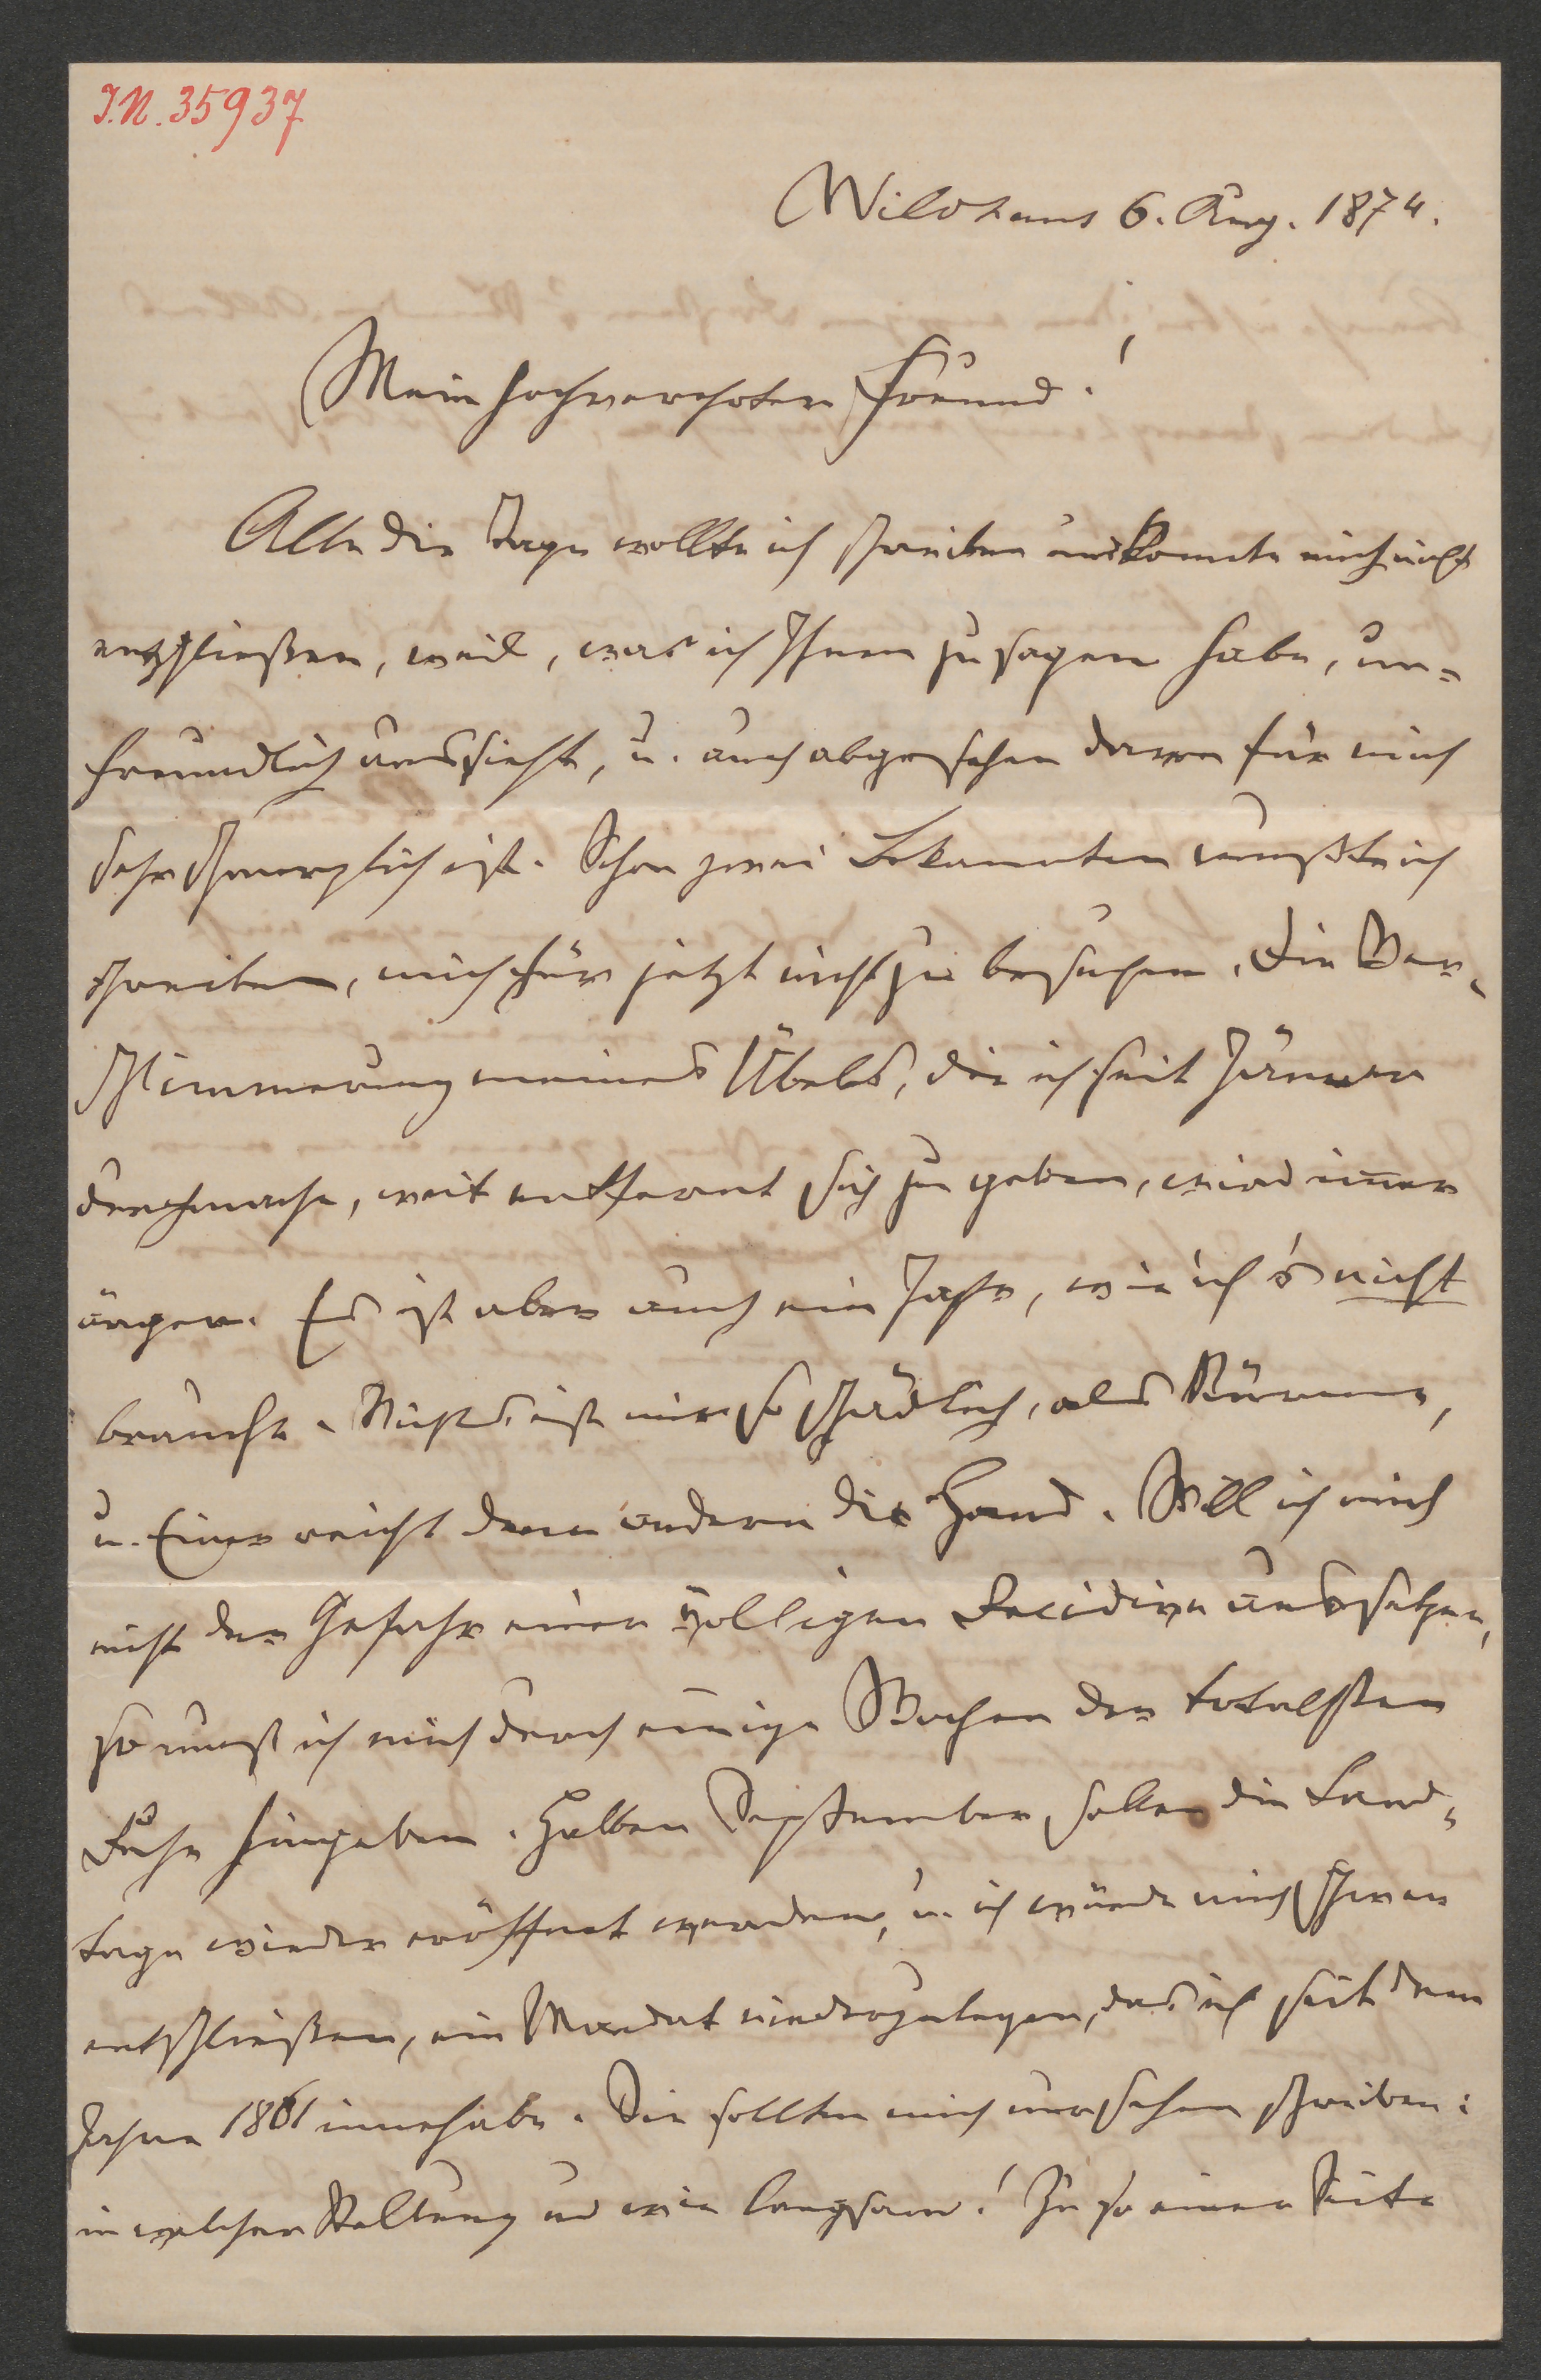 I.N. 35937
Wildhaus 6. Aug. 1874.
Mein hochverehrter Freund!
Alle die Tage wollte ich schreiben und konnte mich nicht
entschließen, weil, was ich Ihnen zu sagen habe, un-
freundlich aussieht, u. auch abgesehen davon für mich
sehr schmerzlich ist. Schon zwei Bekannten mußte ich
schreiben, mich für jetzt nicht zu besuchen. Die Ver-
schlimmerung meines Übels, die ich seit Jänner
durchmache, weit entfernt sich zu geben, wird im̅er
ärger. Es ist aber auch ein Jahr, wie ich's nicht
brauche. Nichts ist mir so schädlich, als Stürme,
u. Einer reicht dem andern die Hand. Will ich mich
nicht der Gefahr einer völligen Recidive aussetzen,
so muß ich mich durch einige Wochen der totalsten
Ruhe hingeben. Halben September sollen die Land-
tage wieder eröffnet werden, u. ich würde mich schwer
entschließen, ein Mandat niederzulegen, das ich seit dem
Jahre 1861 innehabe. Sie sollten mich nur sehen schreiben:
in welcher Stellung und wie langsam! Zu so einer Seite